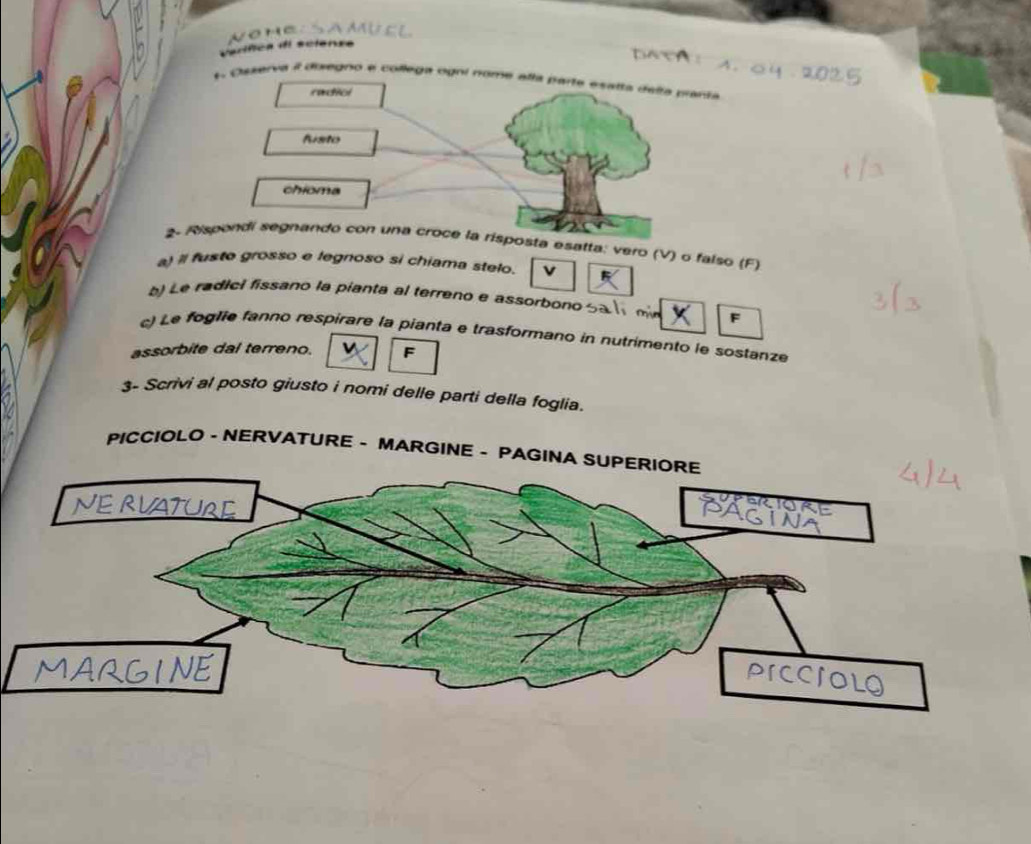 NOME: SAMUEL
DATA: 1.04.2025
Verifica di scienze
1- Osserva il disegno e collega ogni nome alla parte esatta della pianta.
radici
fusto
chioma
1/3
2- Rispondi segnando con una croce la risposta esatta: vero (V) o falso (F)
a) Il fusto grosso e legnoso si chiama stelo. V F
b) Le radici fissano la pianta al terreno e assorbono sali min V F
3/3
c) Le foglie fanno respirare la pianta e trasformano in nutrimento le sostanze
assorbite dal terreno. V F
3- Scrivi al posto giusto i nomi delle parti della foglia.
PICCIOLO - NERVATURE - MARGINE - PAGINA SUPERIORE
4/4
NERVATURE
SUPERIORE
PAGINA
MARGINE
PICCIOLO